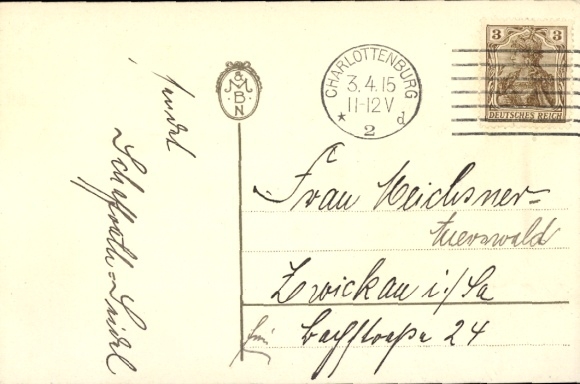 sendet
Schaffrath-Seidel
& M B N
CHARLOTTENBURG
3.4.15
11-12V
* 2 d
3 3
DEUTSCHES REICH
Frau Meichsner-
Auerswald
Zwickau i./Sa
Bachstraße 24